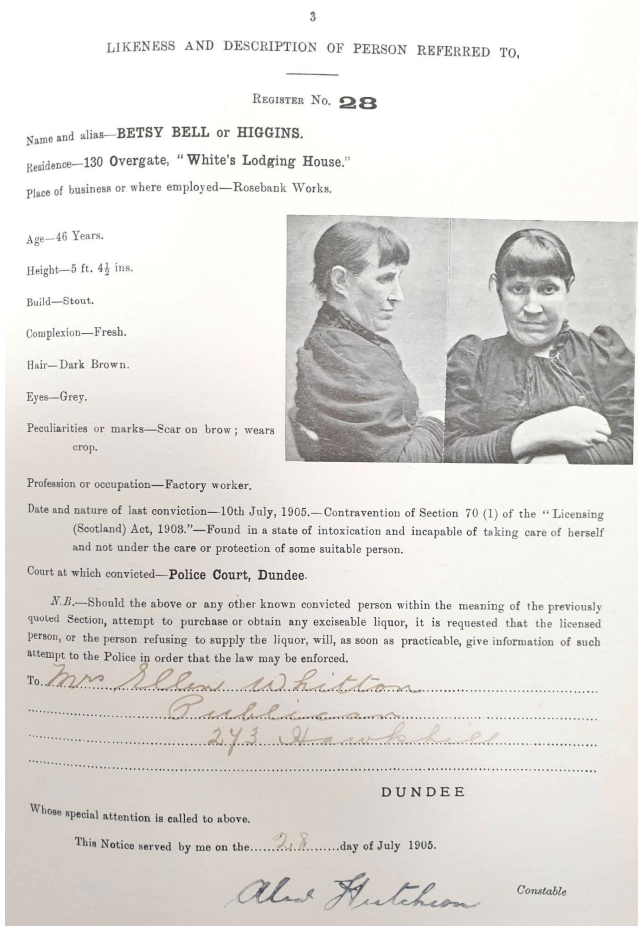 3
LIKENESS AND DESCRIPTION OF PERSON REFERRED TO.
REGISTER No. 28
Name and alias—BETSY BELL or HIGGINS.
Residence—130 Overgate, "White's Lodging House."
Place of business or where employed—Rosebank Works.
Age—46 Years.
Height—5 ft. 4½ ins.
Build—Stout.
Complexion—Fresh.
Hair—Dark Brown.
Eyes—Grey.
Peculiarities or marks—Scar on brow; wears
crop.
Profession or occupation—Factory worker.
Date and nature of last conviction—10th July, 1905.—Contravention of Section 70 (1) of the "Licensing
(Scotland) Act, 1903."—Found in a state of intoxication and incapable of taking care of herself
and not under the care or protection of some suitable person.
Court at which convicted—Police Court, Dundee.
N.B.—Should the above or any other known convicted person within the meaning of the previously
quoted Section, attempt to purchase or obtain any exciseable liquor, it is requested that the licensed
person, or the person refusing to supply the liquor, will, as soon as practicable, give information of such
attempt to the Police in order that the law may be enforced.
To Mrs Ellen Whitton
Publican
273 Hawkhill
DUNDEE
Whose special attention is called to above.
This Notice served by me on the 28 day of July 1905.
Hutcheon Constable